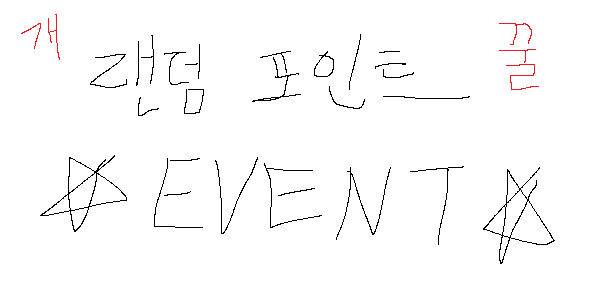 개 랜덤 포인트 꿀
☆ EVENT ☆